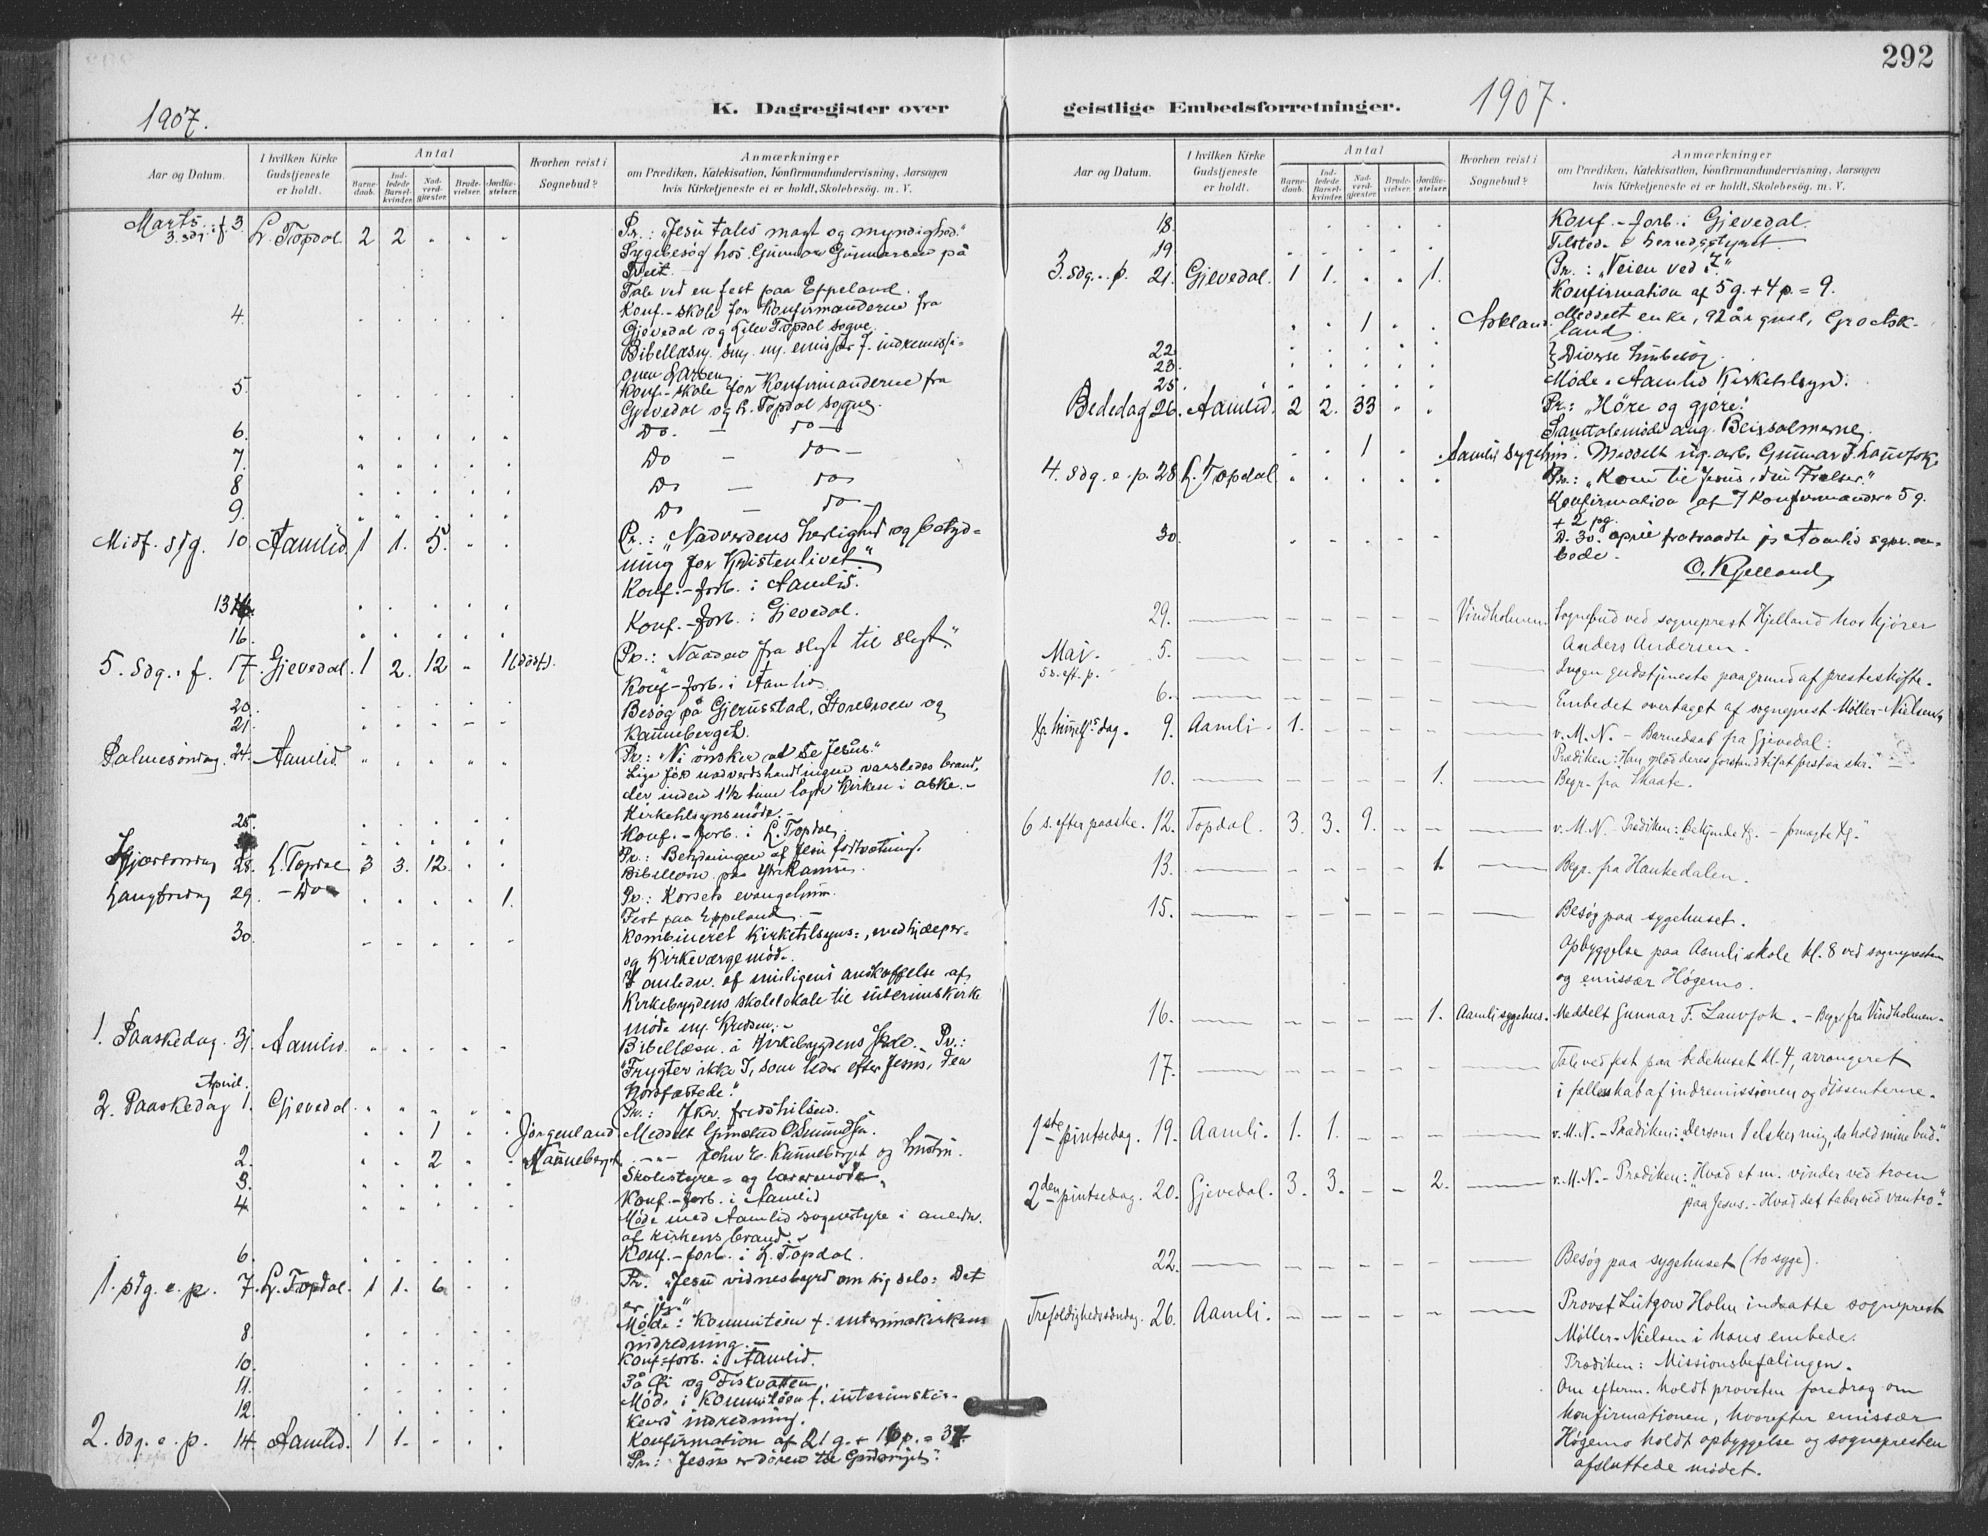 292
1907.
K. Dagregister over
Aar og Datum.
I hvilken Kirke Gudstjeneste er holdt.
Antal
Barnedaab.
Indledede Barselkvinder.
Nadverdgjester.
Brudevielser.
Jordfæstelser.
Hvorhen reist i Sognebud?
Anmærkninger
om Prædiken, Katekisation, Konfirmandundervisning, Aarsagen
hvis Kirketjeneste ei er holdt, Skolebesøg. m. V.
Marts 3. sdg. i f. 3 L. Topdal 2 2 Pr.: "Jesu tales magt og myndighed."
Sygebesøg hos Gunnar Gunnarsen på
Tveit.
Tale ved en fest paa Eppeland.
4. Konf.-skole for Konfirmanderne fra
Gjevedal og Lille Topdal sogne.
5. Konf.-skole for Konfirmanderne fra
Gjevedal og L. Topdal sogne.
6. Do. — do —
7. Do — do —
8 Do — do
9. Do — do —
Midf. sdg. 10 Aamlid 1 1. 5. Pr.: "Nadverdens herlighed og betyd-
ning for Kristenlivet."
Konf.-forb. i Aamlid.
13 Konf.-forb. i Gjevedal.
16.
5. Sdg. i f. 17. Gjevedal. 1 2. 12 1 Pr.: "Naaden fra slegt til slegt"
Konf-forb. i Aamlid
20. Besøg på Gjerusstad, Storebroen og
21. Kanneberget.
Palmesöndag. 24. Aamlid Pr.: "Vi ønsker at se Jesus."
Lige før nadverdshandlingen varsledes brand,
der inden 1½ time lagde Kirken i aske.-
Kirketilsynsmöde.-
25. Konf.-forb. i L. Topdal
Skjærtorsdag 28. L. Topdal 3 3. 12 Pr.: Betydningen af Jesu fodtvætning.
Langfredag 29. — Do 1. Pr.: Korsets evangelium.
Fest paa Eppeland —
30. Kombineret Kirketilsyns-, medhjælper-
og Kirkeværgemöde.
I anledn. af muligens anskaffelse af
Kirkebygdens skolelokale til interimskirke
1. Paaskedag. 31. Aamlid. Bibellæsn. i Kirkebygdens skole. Pr.:
"Frygter ikke I, som leder efter Jesus, den
Korsfæstede."
April.
2. Paaskedag 1. Gjevedal Pr.: Jkor. fredshilsen.
1 Jørgenland. Meddelt
2. 2 Kanneberget — " —
3. Skolestyre- og lærermöde
4. Konf.-forb. i Aamlid
Möde med Aamlid sognestyre i anledn.
af kirkens brand.
6. Konf.-forb. i L. Topdal.
1. Sdg. e. p. 7. L. Topdal. 1 1. 6 Pr. "Jesu vidnesbyrd om sig selv: Det
8. Möde i Kommiteen f. interimskirkens
indredning.
10. Konf-forb. i Aamlid.
11. På Öi og Fiskvatten.
12. Möde i Kommiteen f. interimskir-
kens indredning.
2. Sdg. e. p. 14. Aamlid. 1 1. Konfirmation af 21 g. + 16 p. = 37.
Pr.: Jesus er dören til Gudsriget."
geistlige Embedsforretninger.
1907.
Aar og Datum.
I hvilken Kirke Gudstjeneste er holdt.
Antal
Barnedaab.
Indledede Barselkvinder.
Nadverdgjester.
Brudevielser.
Jordfæstelser.
Hvorhen reist i Sognebud?
Anmærkninger
om Prædiken, Katekisation, Konfirmandundervisning, Aarsagen
hvis Kirketjeneste ei er holdt, Skolebesøg. m. V.
18. Konf.-forb. i Gjevedal.
19 Tilstede i herredsstyret
3. Sdg. e. p. 21. Gjevedal. 1 1. 1. Pr.: "Veien ved I."
Konfirmation af 5 g. + 4 p. = 9.
1 Askland. Meddelt enke, 92 år gml, Gro Ask-
land.
22. } Diverse husbesøg
23.
25. Möde i Aamlid Kirketilsyn.
Bededag 26. Aamlid. 2 2. 33 Pr.: "Höre og gjöre."
1 Aamlid Sygehus. Meddelt
4. Sdg. e. p. 28. L. Topdal Pr.: "Kom til Jesus, din Frelser."
Konfirmation af 7 Konfirmander 5 g.
+ 2 pg.
30. D. 30. april fratraadte jeg Aamlid sgpr. em-
bede.
O. Kjelland
29. Vindholmen. Sognebud ved sogneprest Kjelland hos kjører
Anders Andersen.
Mai. 5. Ingen gudstjeneste paa grund af presteskifte.
5 s. eft. p.
6. Embedet overtaget af sogneprest Møller-Nielsen.
Kr. himmelf.s dag. 9. Aamli. 1. v. M. N. – Barnedaab fra Gjevedal.
Prædiken: "Han oplod deres forstand til at forstaa skr."
10. 1. Begr. fra Skaate.
6 s. efter paaske. 12. Topdal. 3. 3. 9. v. M. N. Prædiken:
13. 1. Begr. fra Haukedalen.
15. Besøg paa sygehuset.
Opbyggelse paa Aamli skole kl. 8 ved sognepresten
og emissær Høgemo.
16. 1. Aamli sygehus. Meddelt Gunnar F. Lauvfok. – Begr. fra Vindholmen.
17. Tale ved fest paa bedehuset kl. 4, arrangeret
i fællesskab af indremissionen og dissenterne.
1ste pintsedag. 19. Aamli. 1. 1. v. M. N. – Prædiken: "Dersom I elsker mig, da hold mine bud."
2den pintsedag. 20. Gjevedal. 3. 3. 2. v. M. N. – Prædiken: "Hvad et m. vinder ved troen
paa Jesus. – Hvad det taber ved vantro."
22. Besøg paa sygehuset (to syge).
Trefoldighedssøndag. 26. Aamli. Provst Lütgow Holm indsatte sogneprest
Møller-Nielsen i hans embede.
Prædiken: Missionsbefalingen.
Om efterm. holdt provsten foredrag om
konfirmationen, hvorefter emissær
Høgemo holdt opbyggelse og sognepresten
afsluttede mødet.